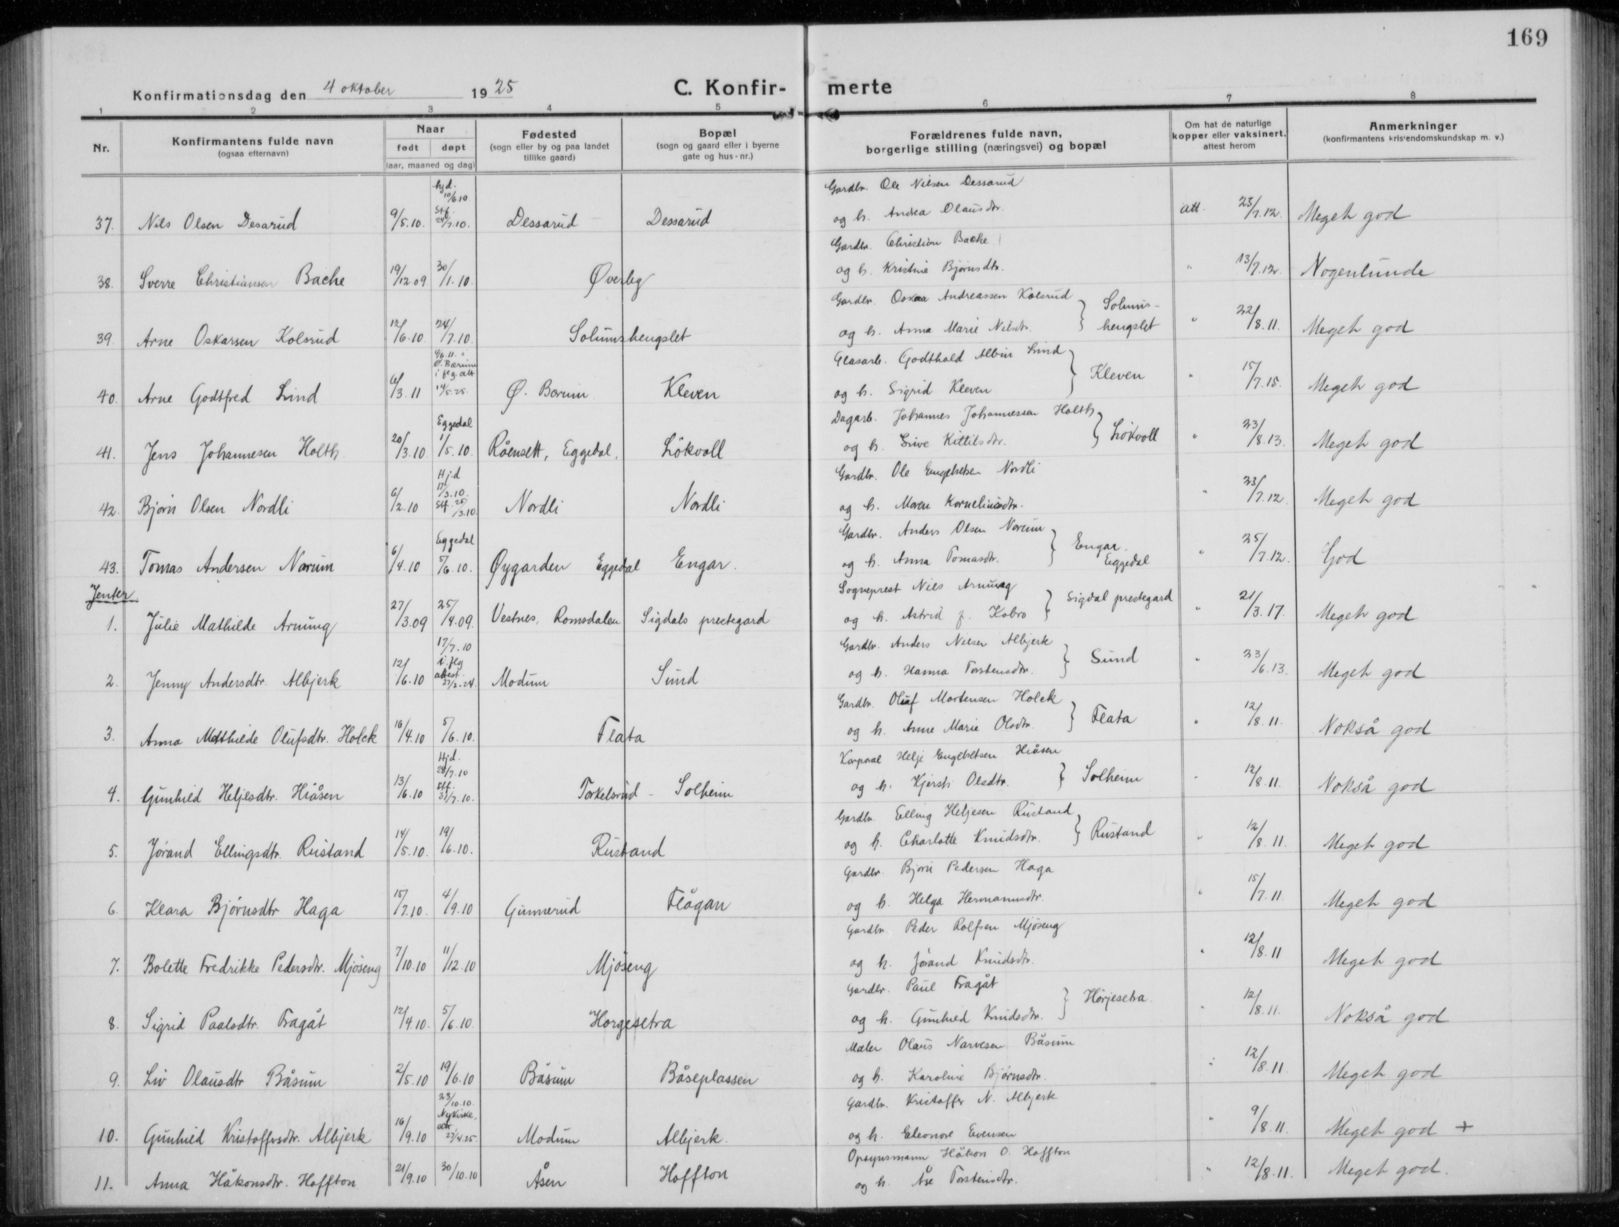 169
Konfirmationsdag den 4 oktober 1925 C. Konfirmerte
1 2 3 4 5 6 7 8
Nr. Konfirmantens fulde navn (ogsaa efternavn) Naar født døpt (aar, maaned og dag) Fødested (sogn eller by og paa landet tillike gaard) Bopæl (sogn og gaard eller i byerne gate og hus-nr.) Forældrenes fulde navn, borgerlige stilling (næringsvei) og bopæl Om hat de naturlige kopper eller vaksinert, attest herom Anmerkninger (konfirmantens kristendomskundskap m. v.)
37. Nils Olsen Desarud 9/5.10. hjd. 10/6.10 stf. 24/7.10. Dessarud Dessarud Gardbr. Ole Nilsen Dessarud og h. Andrea Olausdtr. att. 23/7.12. Meget god
38. Sverre Christiansen Bache 19/12.09 30/1.10. Øverby Gardbr. Christian Bache og h. Kristine Bjørnsdtr. " 13/7.12. Nogenlunde
39. Arne Oskarsen Kolsrud 12/6.10 24/7.10. Solumshengslet Gardbr. Oskar Andreassen Kolsrud og h. Anna Marie Nilsdtr. } Solumshengslet " 22/8.11. Meget god
40. Arne Godtfred Lind 6/3.11 Ø. Bærum i flg. att. Ø. Bærum Kleven Glasarb. Godthold Albin Lind og h. Sigrid Kleven } Kleven " 15/7.15. Meget god
41. Jens Johannesen Holth 20/3.10 Eggedal 1/5.10. Råensett, Eggedal, Lökvoll Dagarb. Johannes Johannessen Holth og h. Grive Kittilsdtr. } Lökvoll " 23/8.13. Meget god
42. Bjørn Olsen Nordli 6/2.10 Hjd 17/3.10. Stf. 28/3.10 Nordli Nordli Gardbr. Ole Engebretsen Nordli og h. Maren Korneliusdtr. " 23/7.12. Meget god
43. Tomas Andersen Narum 6/4.10 Eggedal 5/6.10. Øygarden Eggedal Engar. Gardbr. Anders Olsen Narum og h. Anna Tomasdtr. } Engar. Eggedal " 25/7.12. God
Jenter
1. Julie Mathilde Arnung 27/3.09 25/4.09. Vestnes, Romsdalen Sigdals prestegard Sogneprest Niels Arnung og h. Astrid f. Kobro } Sigdal prestegard " 21/3.17. Meget god
2. Jenny Andersdtr. Albjerk 12/6.10 17/7.10 i flg attest 27/2.24 Modum Sund Gardbr. Anders Nilsen Albjerk og h. Hanna Torstensdtr. } Sund " 23/6.13. Meget god
3. Anna Mathilde Olufsdtr. Holck 16/4.10 5/6.10. Flata Gardbr. Oluf Mortensen Holck og h. Anne Marie Olsdtr. } Flata " 12/8.11. Nokså god
4. Gunhild Heljesdtr. Hiåsen 13/6.10 Hjd. 20/7.10 stf. 31/7.10. Torkelsrud - Solheim Korporal Helje Engebretsen Hiåsen og h. Kjersti Olsdtr. } Solheim " 12/8.11. Nokså god
5. Jørand Ellingsdtr. Rustand 14/5.10. 19/6.10. Rustand Gardbr. Elling Heljesen Rustand og h. Charlotte Knudsdtr. } Rustand " 12/8.11. Meget god
6. Klara Bjørnsdtr Haga 15/7.10. 4/9.10 Gunnerud Flågan Gardbr. Bjørn Pedersen Haga og h. Helga Hermannsdtr. " 15/7.11 Meget god
7. Bolette Fredrikke Pedersdtr. Mjøseng 7/10.10 11/12.10 Mjøseng Gardbr. Peder Rolfsen Mjøseng og h. Jørand Knudsdtr. " 12/8.11 Meget god
8. Sigrid Paalsdtr. Fragåt 12/4.10. 5/6.10. Horgesetra Gardbr. Paul Fragåt og h. Gunhild Knudsdtr. } Hørjesetra " 12/8.11. Nokså god
9. Liv Olausdtr Båsum 2/5.10 19/6.10 Båsum Båseplassen Maler Olaus Narvesen Båsum og h. Karoline Bjørnsdtr. " 12/8.11 Meget god
10. Gunhild Kristoffersdtr. Albjerk 16/9.10 23/10.10. Nykirke. att. 27/4.25. Modum Albjerk. Gardbr. Kristoffer N. Albjerk og h. Eleonore Evensen " 9/8.11. Meget god +
11. Anna Håkonsdtr. Hoffton 21/9.10 30/10.10 Åsen Hoffton Opsynsmann Håkon O. Hoffton og h. Åse Torstensdtr. " 12/8.11. Meget god.